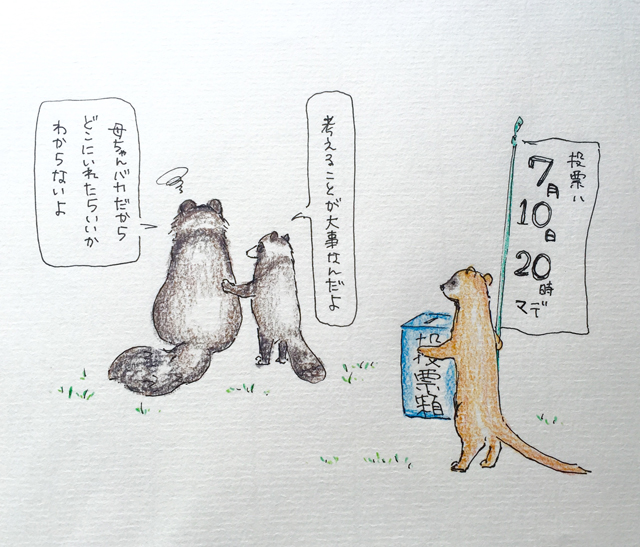 母ちゃんバカだから
どこにいれたらいいか
わからないよ
考えることが大事なんだよ
投票ハ
7月
10日
20時
マデ
投票箱